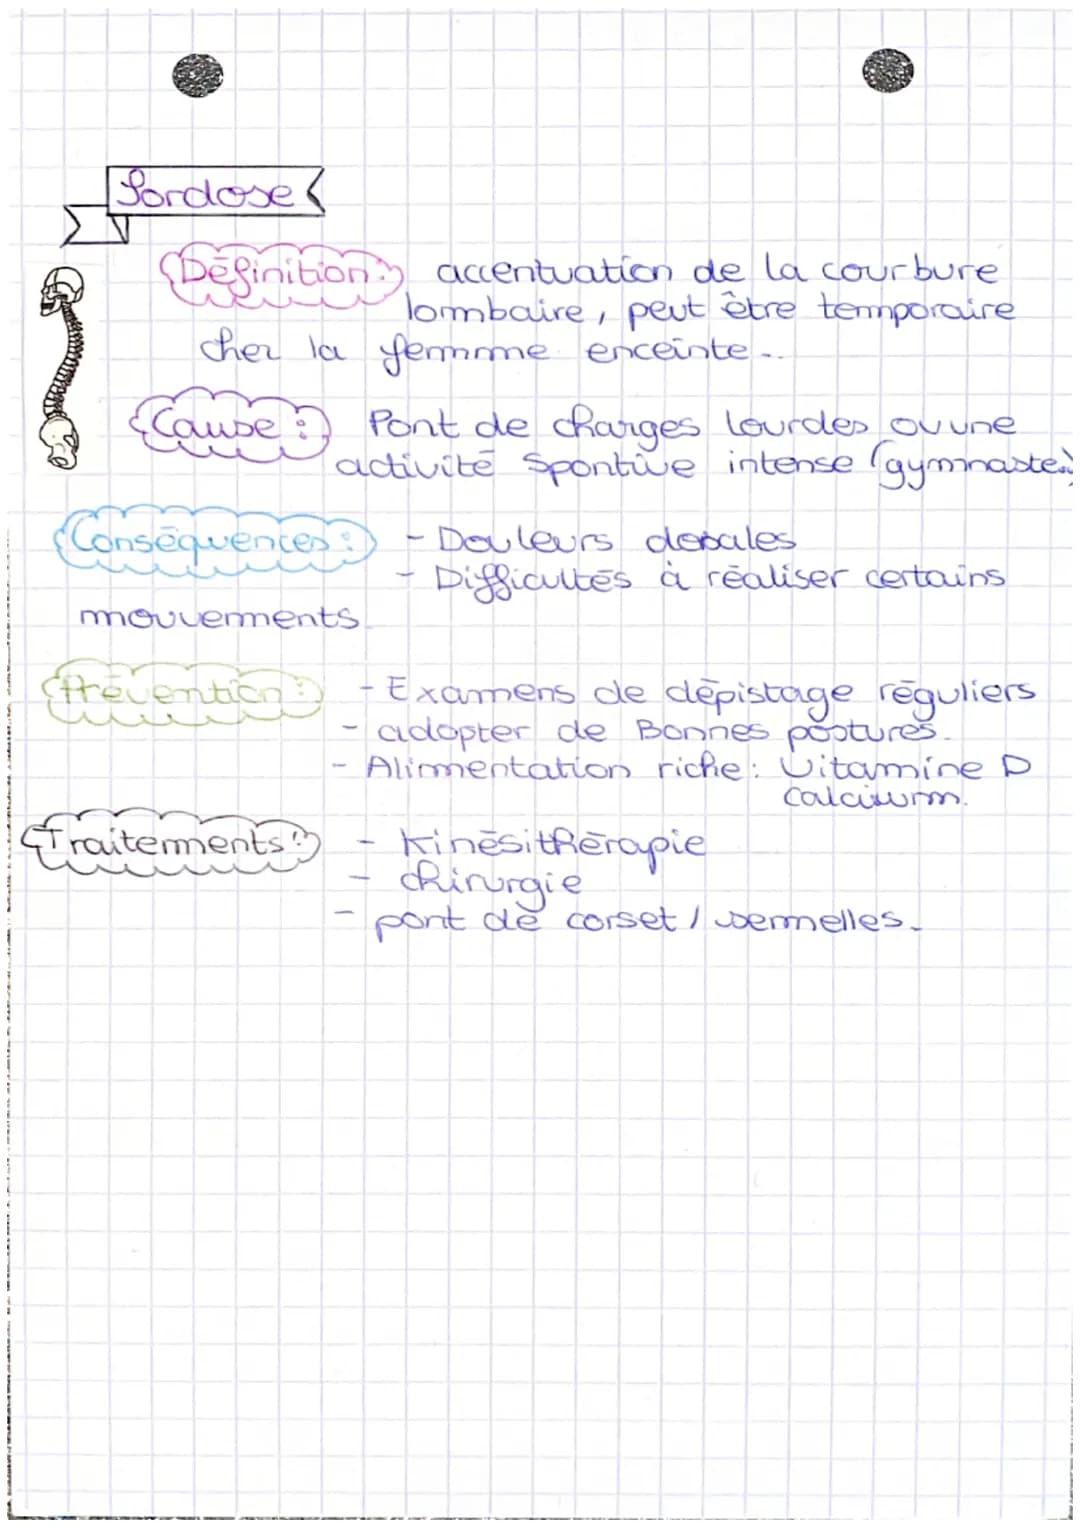 Lordose
Définition : accentuation de la courbure
lombaire, peut être temporaire
chez la femme enceinte...
Cause : Port de charges lourdes ou une
activité Sportive intense (gymnaste..)
Conséquences : - Douleurs dorsales
- Difficultés à réaliser certains
mouvements.
Prévention : - Examens de dépistage réguliers
- adopter de Bonnes postures.
- Alimentation riche : Vitamine D
Calcium.
Traitements : - Kinésithérapie
- chirurgie
- port de corset / semelles.